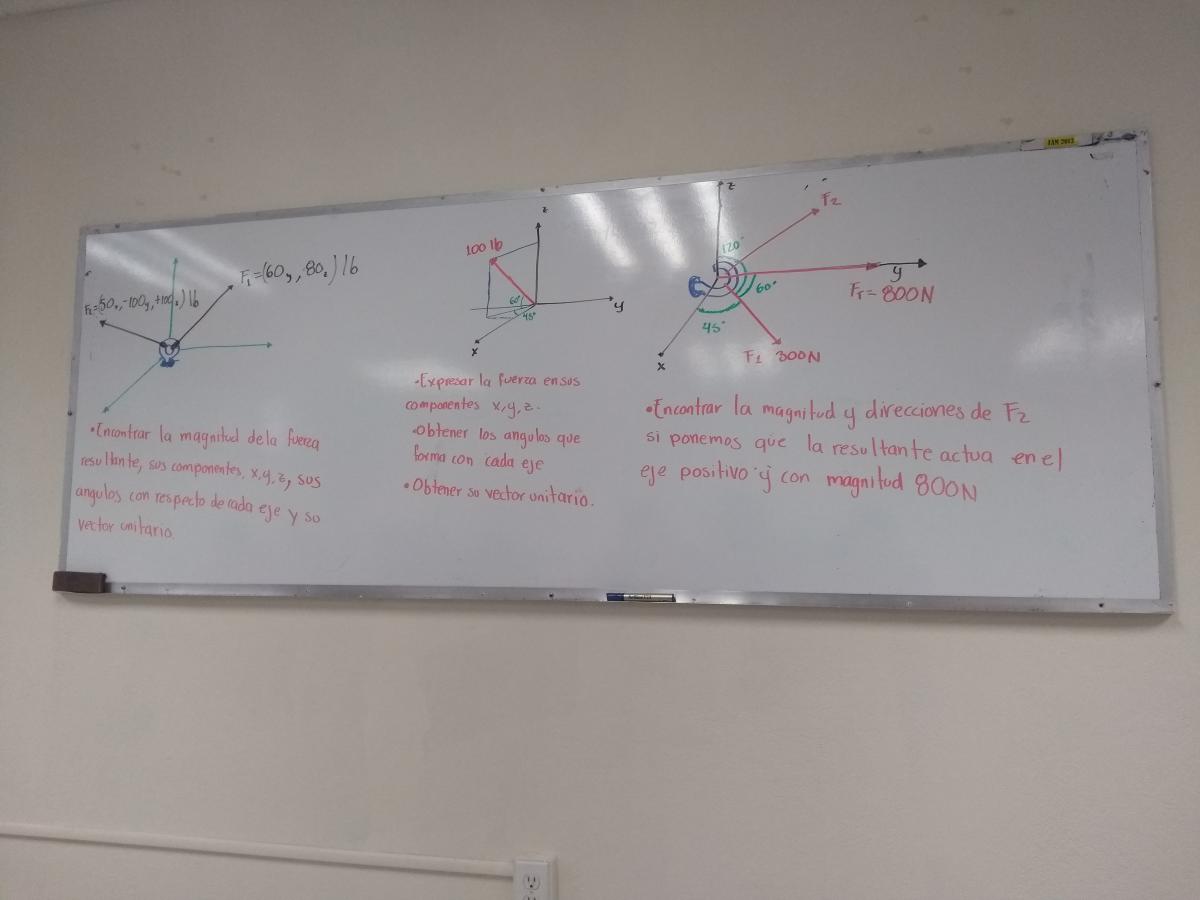 F₁=(60y, 80z) lb
F₂=(50x,-100y,+100z) lb
•Encontrar la magnitud de la fuerza
resultante, sus componentes, x,y,z, sus
angulos con respecto de cada eje y su
vector unitario.
z
100 lb
60°
45°
y
x
•Expresar la fuerza en sus
componentes x,y,z.
•Obtener los angulos que
forma con cada eje
•Obtener su vector unitario.
JAN 2013
z
F₂
120°
60°
y
Fr=800N
45°
x
F1 300N
•Encontrar la magnitud y direcciones de F₂
si ponemos que la resultante actua en el
eje positivo y con magnitud 800N